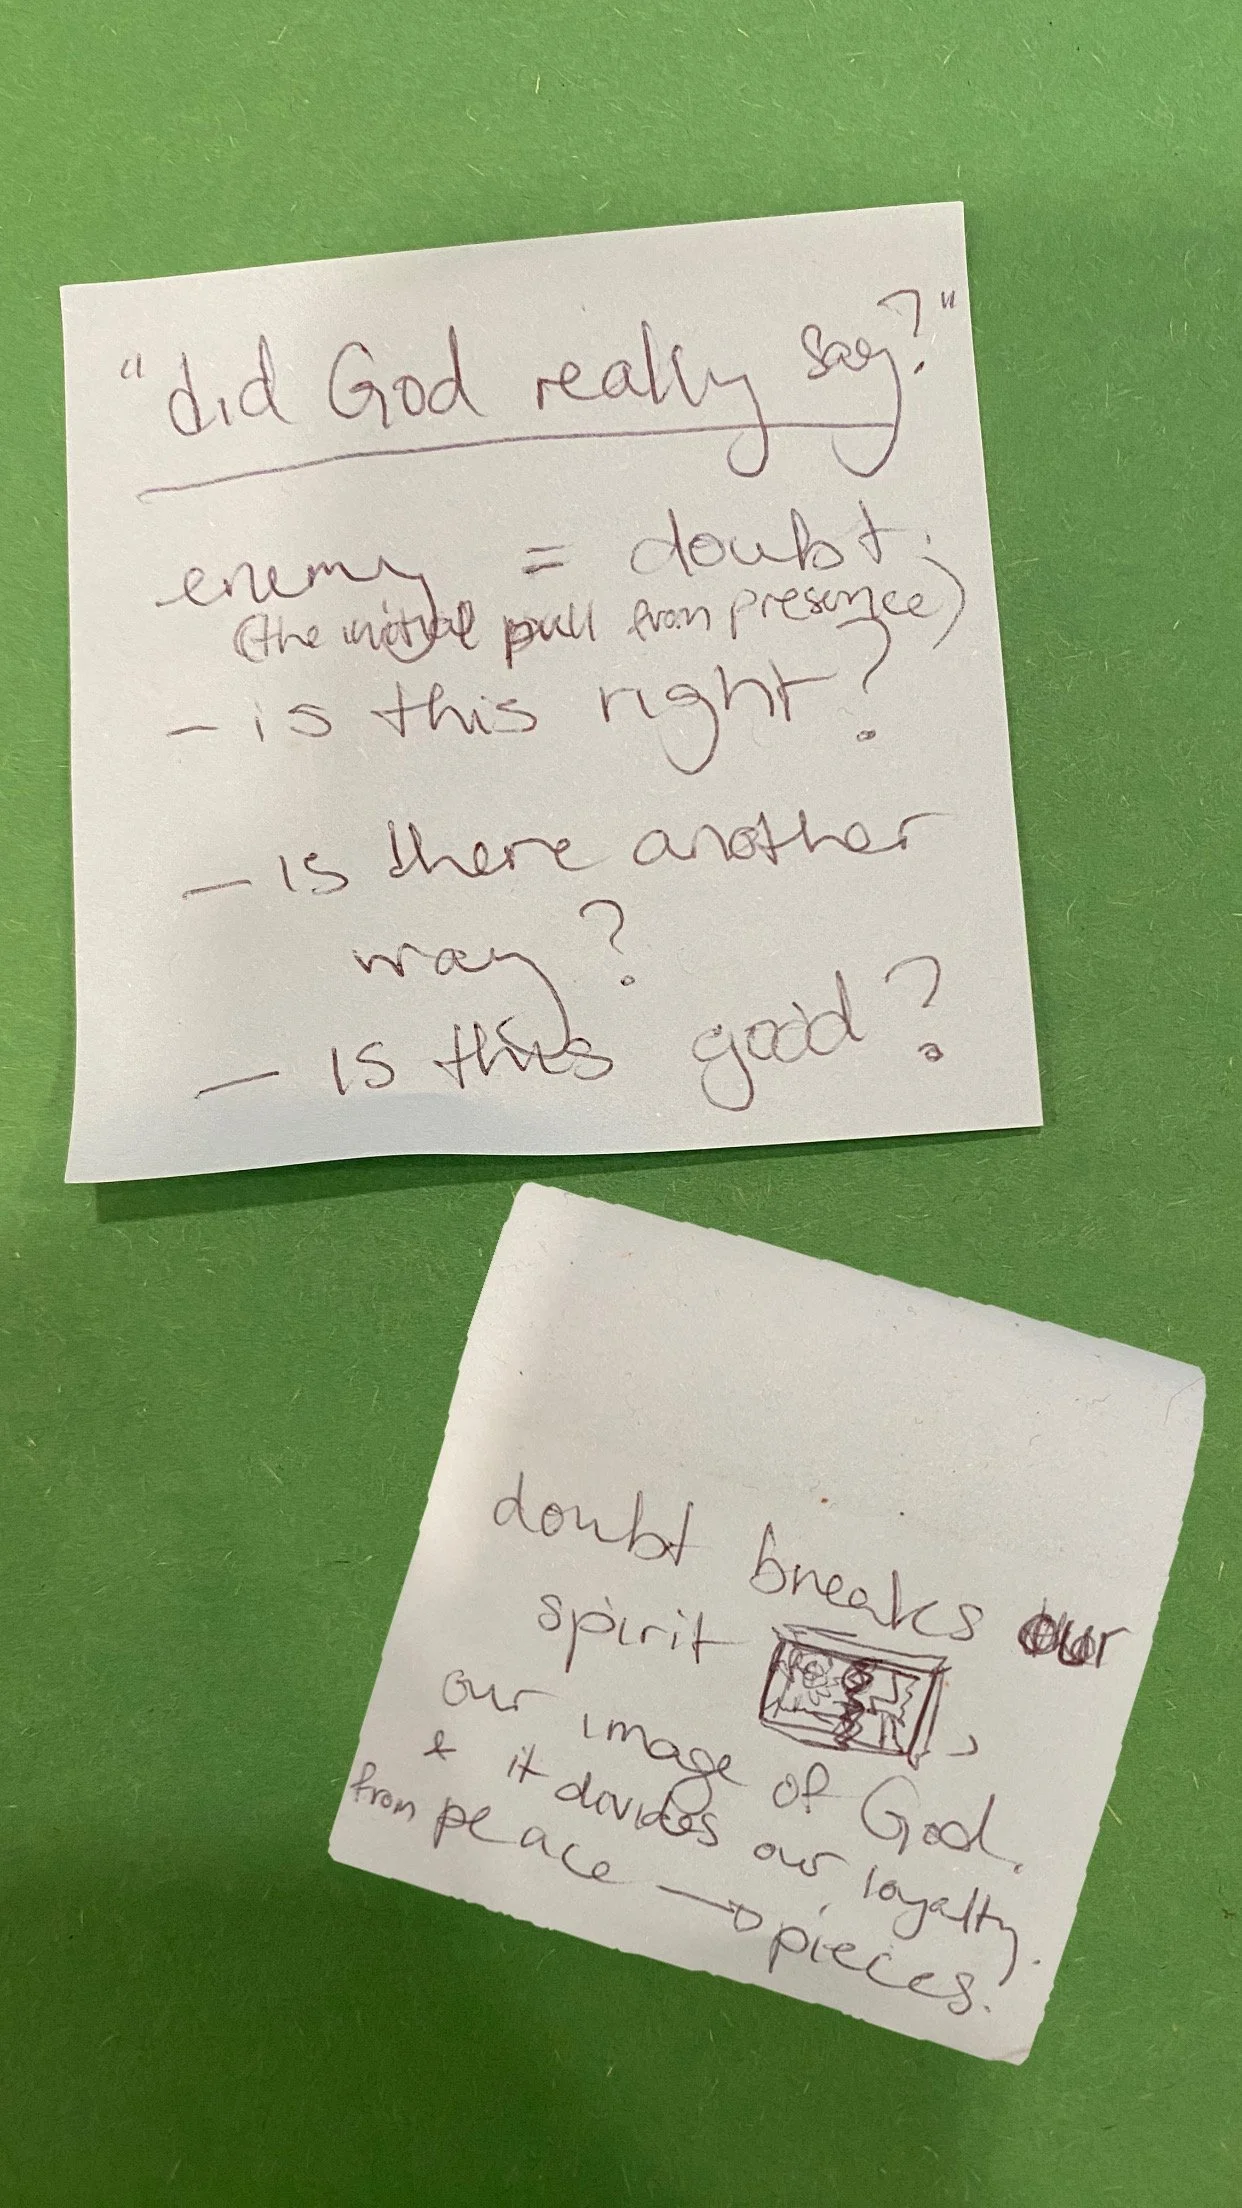 "did God really say?"
enemy = doubt.
(the initial pull from presence)
- is this right?
- is there another
way?
- is this good?
doubt breaks our
spirit ,
our image of God.
& it divides our loyalty.
from peace → pieces.